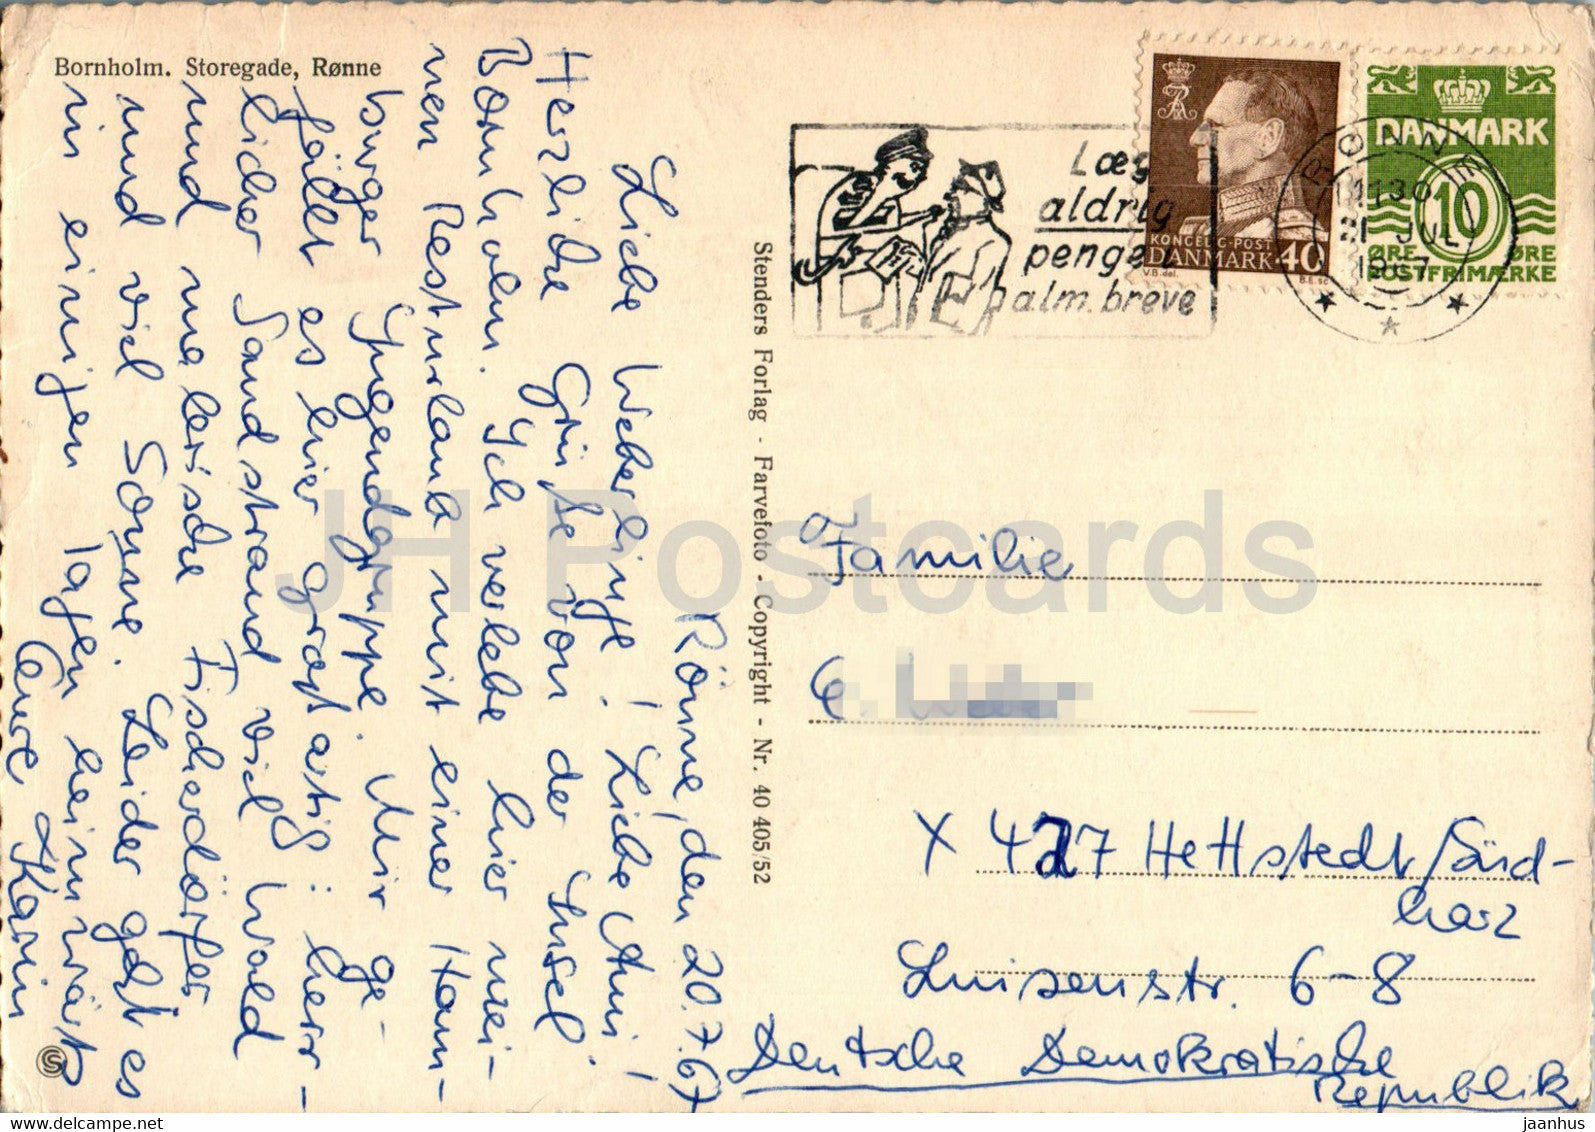 Bornholm. Storegade, Rønne
Rönne, den 20.7.67
Liebe Weberlinge! Liebe Omi!
Herzliche Grüße von der Insel
Bornholm. Ich verlebe hier mei-
nen Resturlaub mit einer Ham-
burger Jugendgruppe. Mir ge-
fällt es hier großartig: herr-
licher Sandstrand viel Wald
und malerische Fischerdörfer
und viel Sonne. Leider geht es
in einigen Tagen heimwärts
Eure Karin
Stenders Forlag - Farvefoto - Copyright - Nr. 40 405/52
Læg
aldrig
penge i
alm. breve
KONGELIG POST
DANMARK 40
V.B. del.
DANMARK
10
ØRE ØRE
POSTFRIMÆRKE
RØNNE
21 JUL
1967
Familie
X 427 Hettstedt/Süd-
harz
Luisenstr. 6-8
Deutsche Demokratische
Republik
JH Postcards
delcampe.net
jaanhus